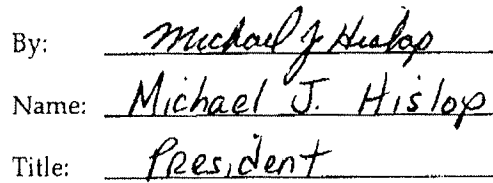 By: Michael J Hislop
Name: Michael J. Hislop
Title: President